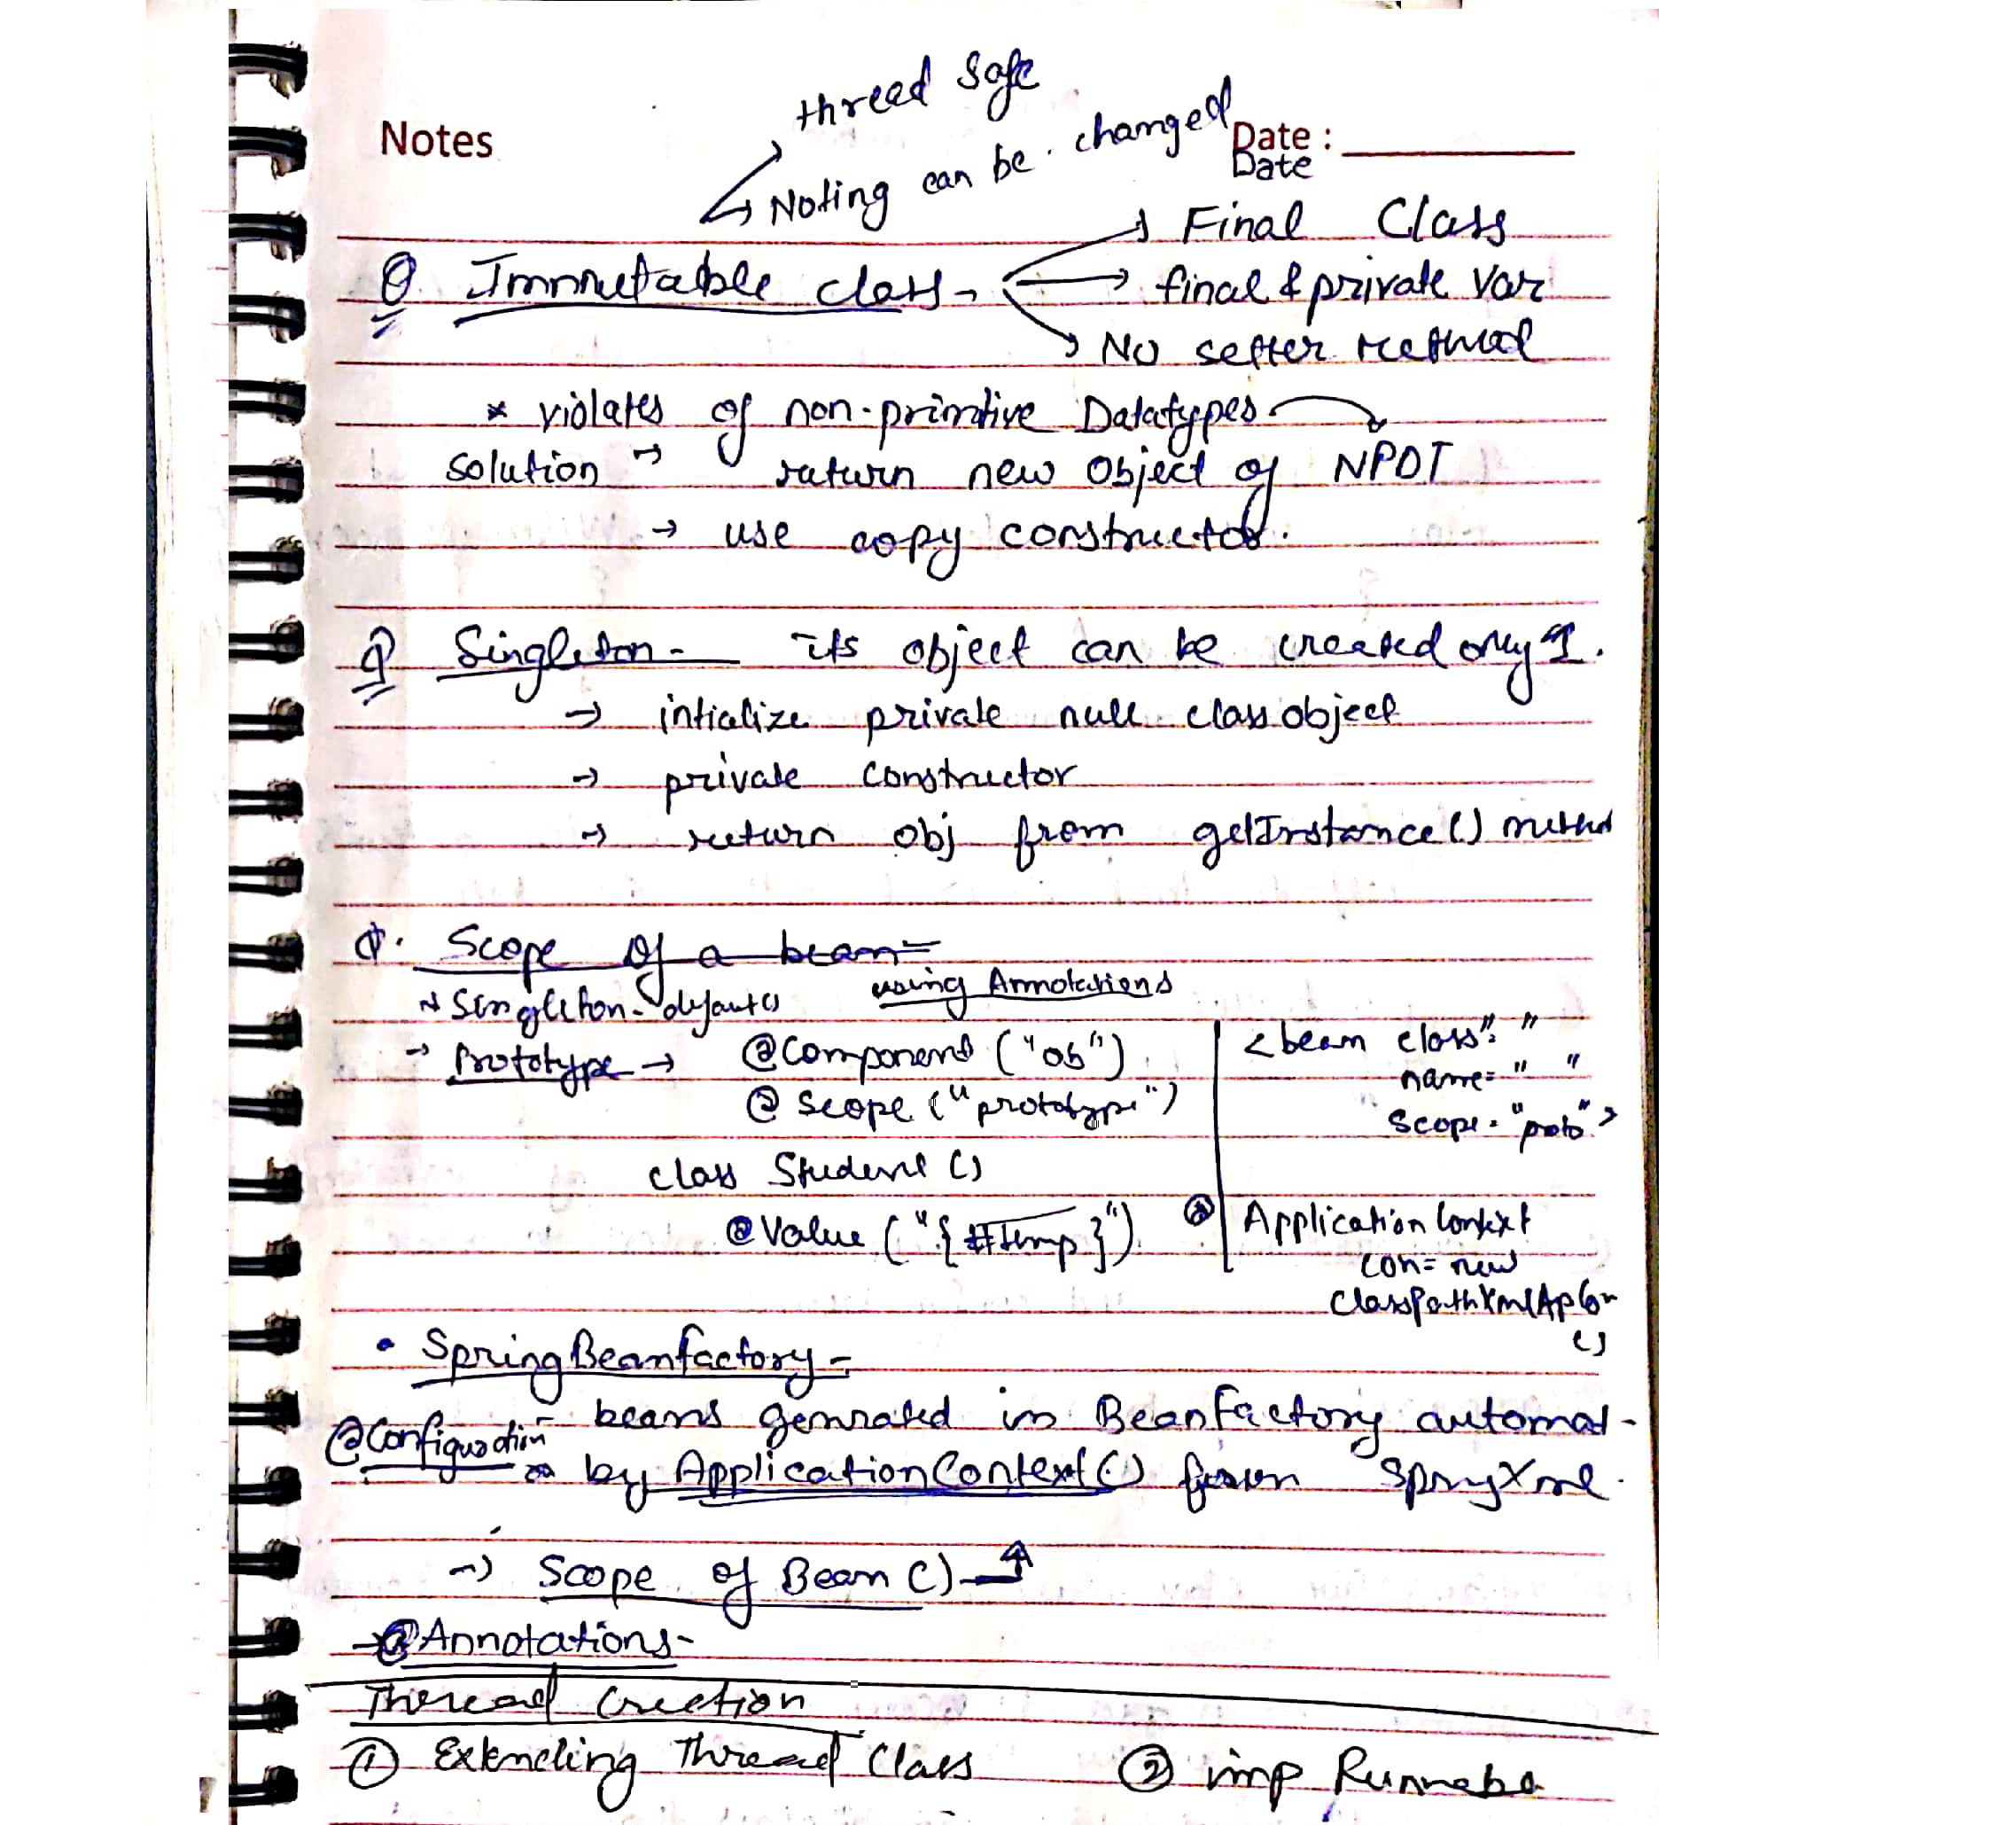 thread safe
Notes
Noting can be changed
Date :
Date
Final Class
Q Immutable class -
final & private Var
No setter method
* violates of non-primitive Datatypes
solution → return new object of NPDT
→ use copy constructor.
Q Singleton - its object can be created only 1.
→ intialize private null class object
→ private constructor
→ return obj from getInstance() method
Q. Scope of a bean =
→ Singleton - default
using Annotations
→ Prototype → @Component ("ob")
@ scope ("prototype")
class Student ()
@Value ("{#temp}")
<bean class=" "
name=" "
scope="proto">
Application Context
con= new
ClassPathXmlApCon
()
• Spring Beanfactory -
- beans genrated in Beanfactory automat-
@Configuration
by ApplicationContext() from SprngXml.
→ Scope of Bean ()
→ @Annotations -
Theread Creetion
① Extending Thread Class
② imp Runnabe